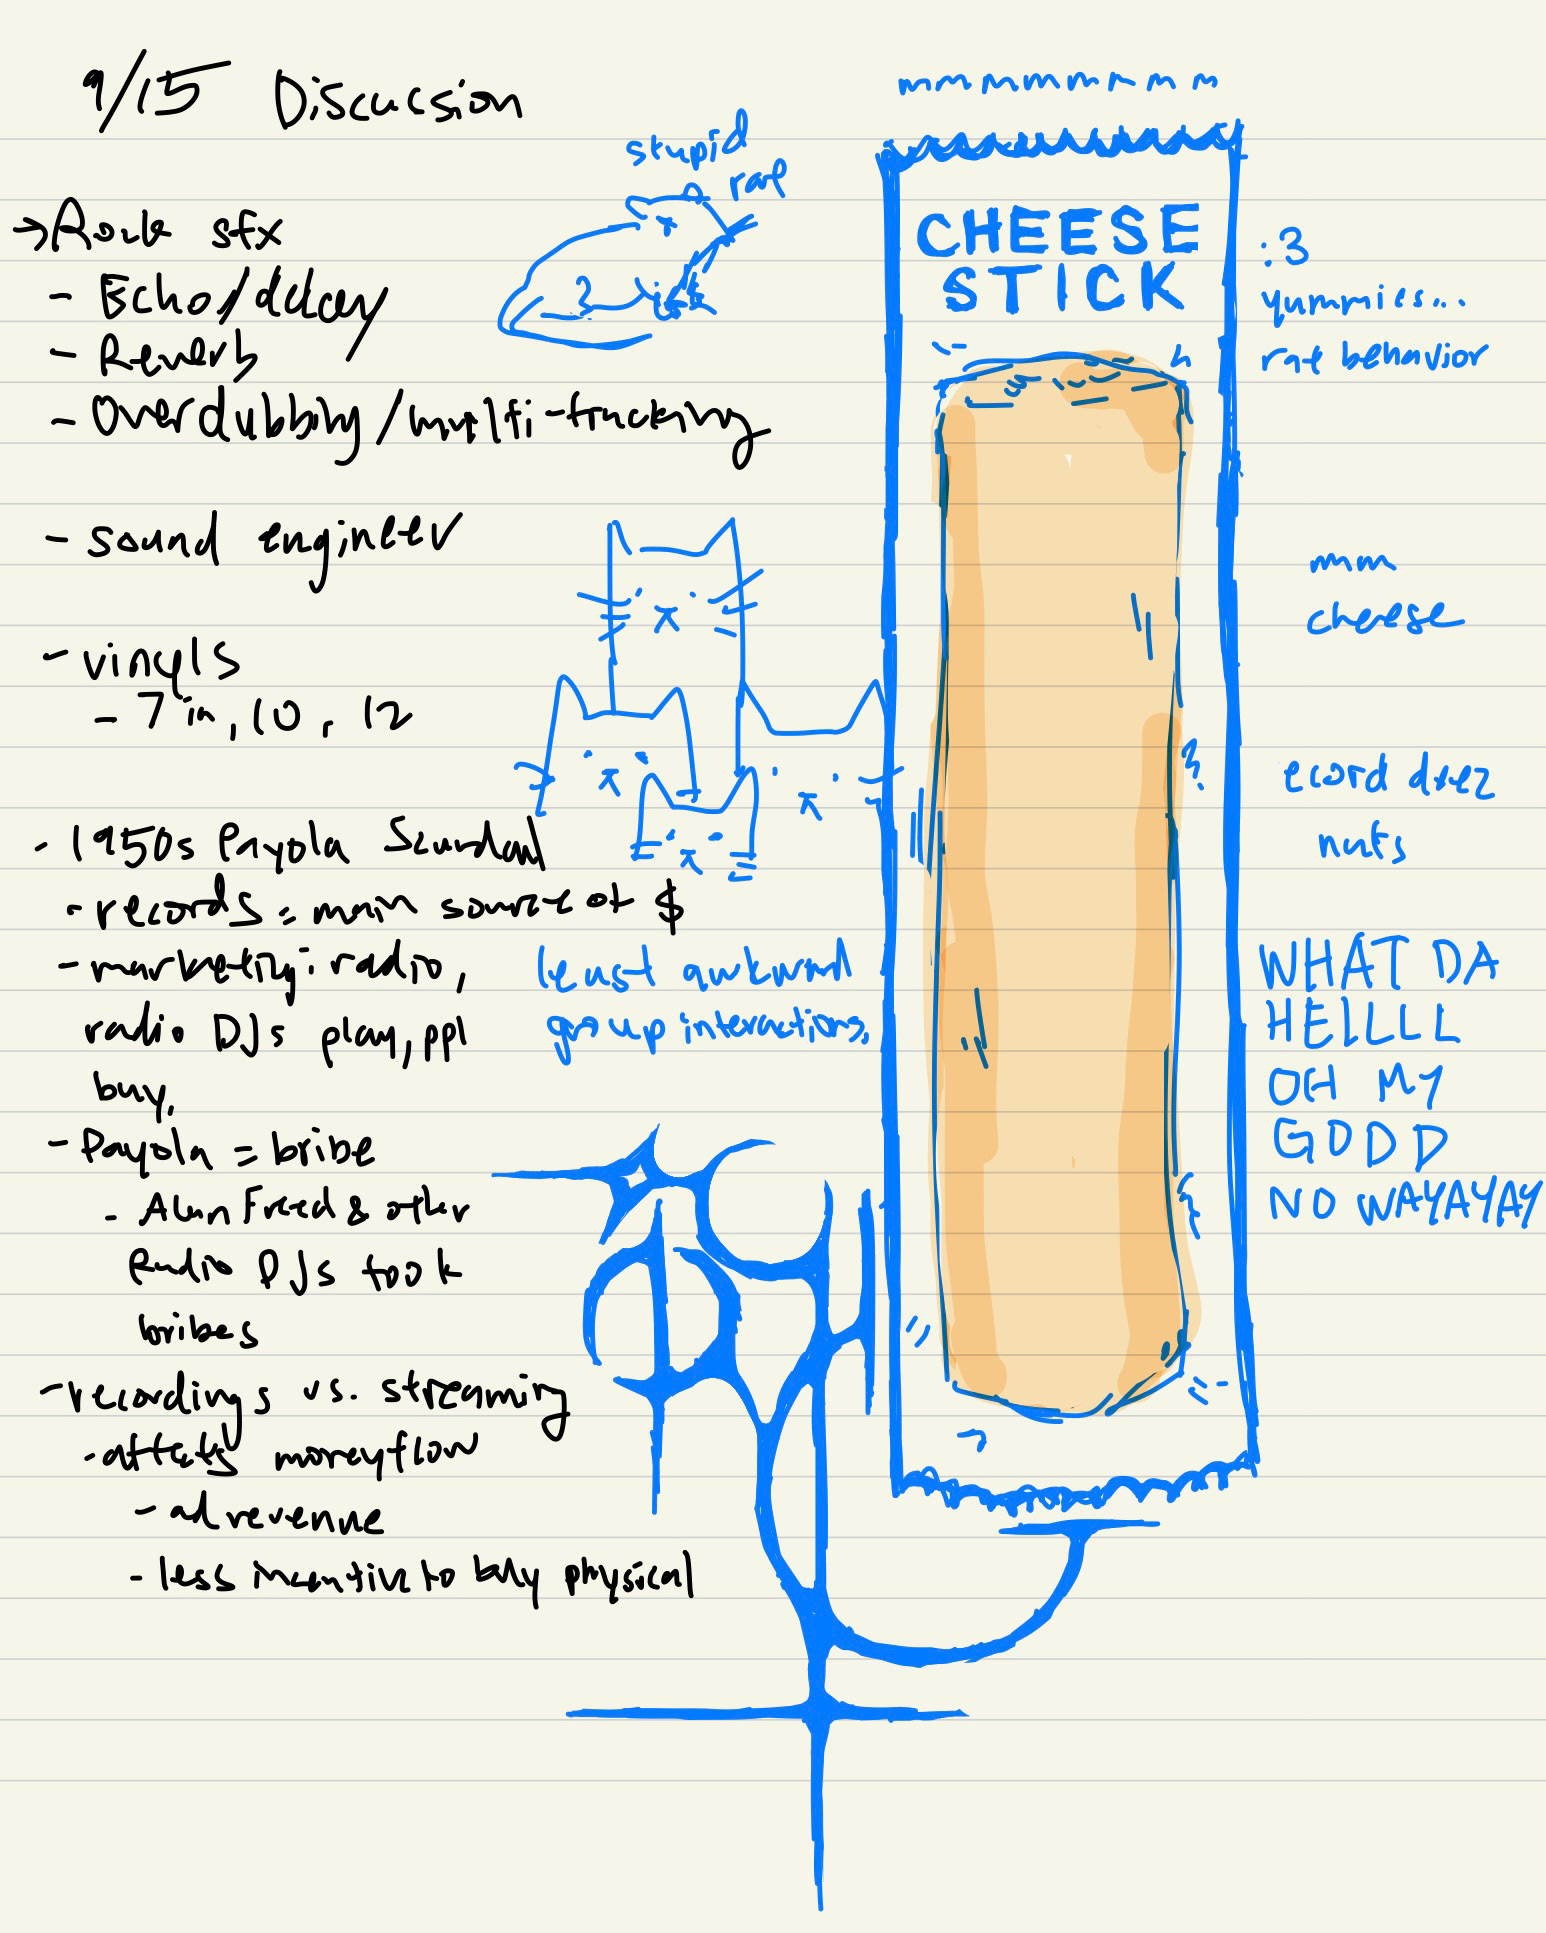 9/15 Discussion
→ Rock sfx
- Echo/delay
- Reverb
- Overdubbing/multi-tracking
- sound engineer
- vinyls
- 7 in, 10, 12
- 1950s Payola Scandal
- records = main source of $
- marketing: radio,
radio DJs play, ppl
buy,
- Payola = bribe
- Alan Freed & other
Radio DJs took
bribes
- recordings vs. streaming
- affects moneyflow
- ad revenue
- less incentive to buy physical
stupid
rat
least awkward
group interactions,
mmmmmmmm
CHEESE
STICK
:3
yummies...
rat behavior
mm
cheese
ecord deez
nuts
WHAT DA
HELLLL
OH MY
GODD
NO WAYAYAY